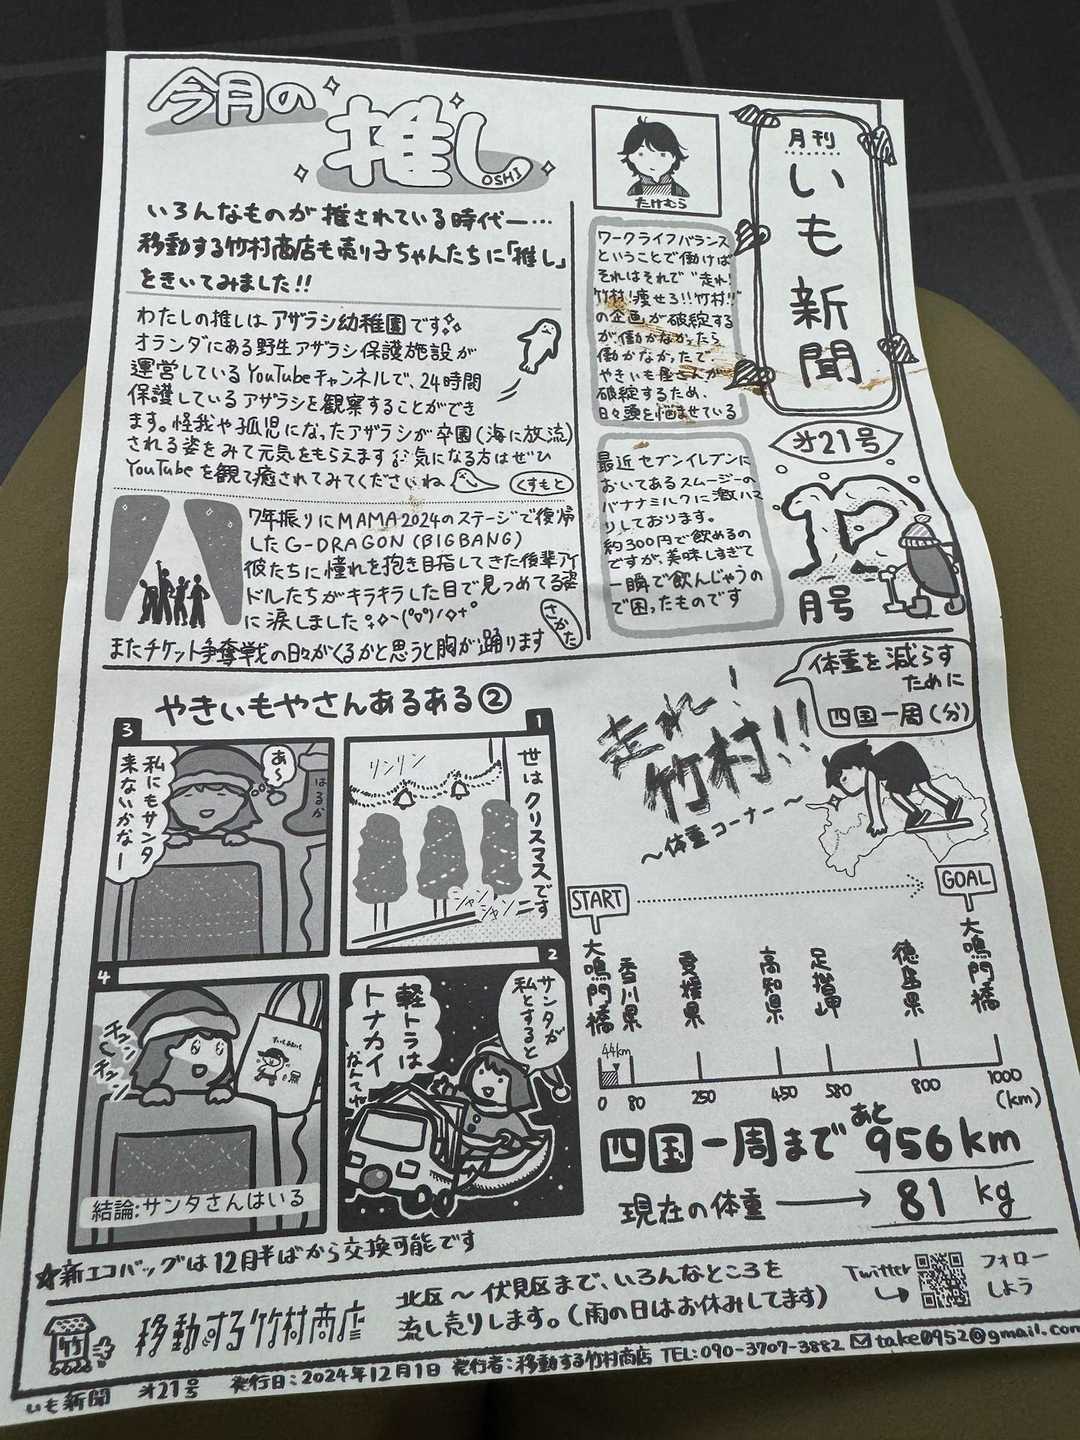 月刊
いも新聞
第21号
12
月号
たけむら
ワークライフバランス
ということで働けば
それはそれで"走れ!
竹村!痩せろ!!竹村!!"
の企画が破綻する
が、働かなかったら
働かなかったで、
やきいも屋さんが
破綻するため、
日々頭を悩ませている
最近セブンイレブンに
おいてあるスムージーの
バナナミルクに激ハマ
りしております。
約300円で飲めるの
ですが、美味しすぎて
一瞬で飲んじゃうの
で困ったものです
今月の
推し
OSHI
いろんなものが推されている時代ー…
移動する竹村商店も売り子ちゃんたちに「推し」
をきいてみました!!
わたしの推しはアザラシ幼稚園です
オランダにある野生アザラシ保護施設が
運営しているYouTubeチャンネルで、24時間
保護しているアザラシを観察することができ
ます。怪我や孤児になったアザラシが卒園(海に放流)
される姿をみて元気をもらえます 気になる方はぜひ
YouTubeを観て癒されてみてくださいね
くすもと
7年振りにMAMA2024のステージで復帰
したG-DRAGON(BIGBANG)
彼たちに憧れを抱き目指してきた後輩アイ
ドルたちがキラキラした目で見つめてる姿
に涙しました
またチケット争奪戦の日々がくるかと思うと胸が踊ります
さかた
やきいもやさんあるある②
1
世はクリスマスです
リンリン
シャン
シャン
2
サンタが
私とすると
軽トラは
トナカイ
なんてね
3
あ〜
はるか
私にもサンタ
来ないかなー
4
チュン
チュン
結論:サンタさんはいる
☆新エコバッグは12月半ばから交換可能です
体重を減らす
ために
四国一周(分)
走れ!
竹村!!
〜体重コーナー〜
START
GOAL
大鳴門橋
香川県
愛媛県
高知県
足摺岬
徳島県
大鳴門橋
44km
0 80 250 450 580 800 1000
(km)
四国一周まであと956km
現在の体重→81kg
移動する竹村商店
北区〜伏見区まで、いろんなところを
流し売りします。(雨の日はお休みしてます)
Twitter
フォロー
しよう
いも新聞 第21号 発行日:2024年12月1日 発行者:移動する竹村商店 TEL:090-3707-3882 take0952@gmail.com